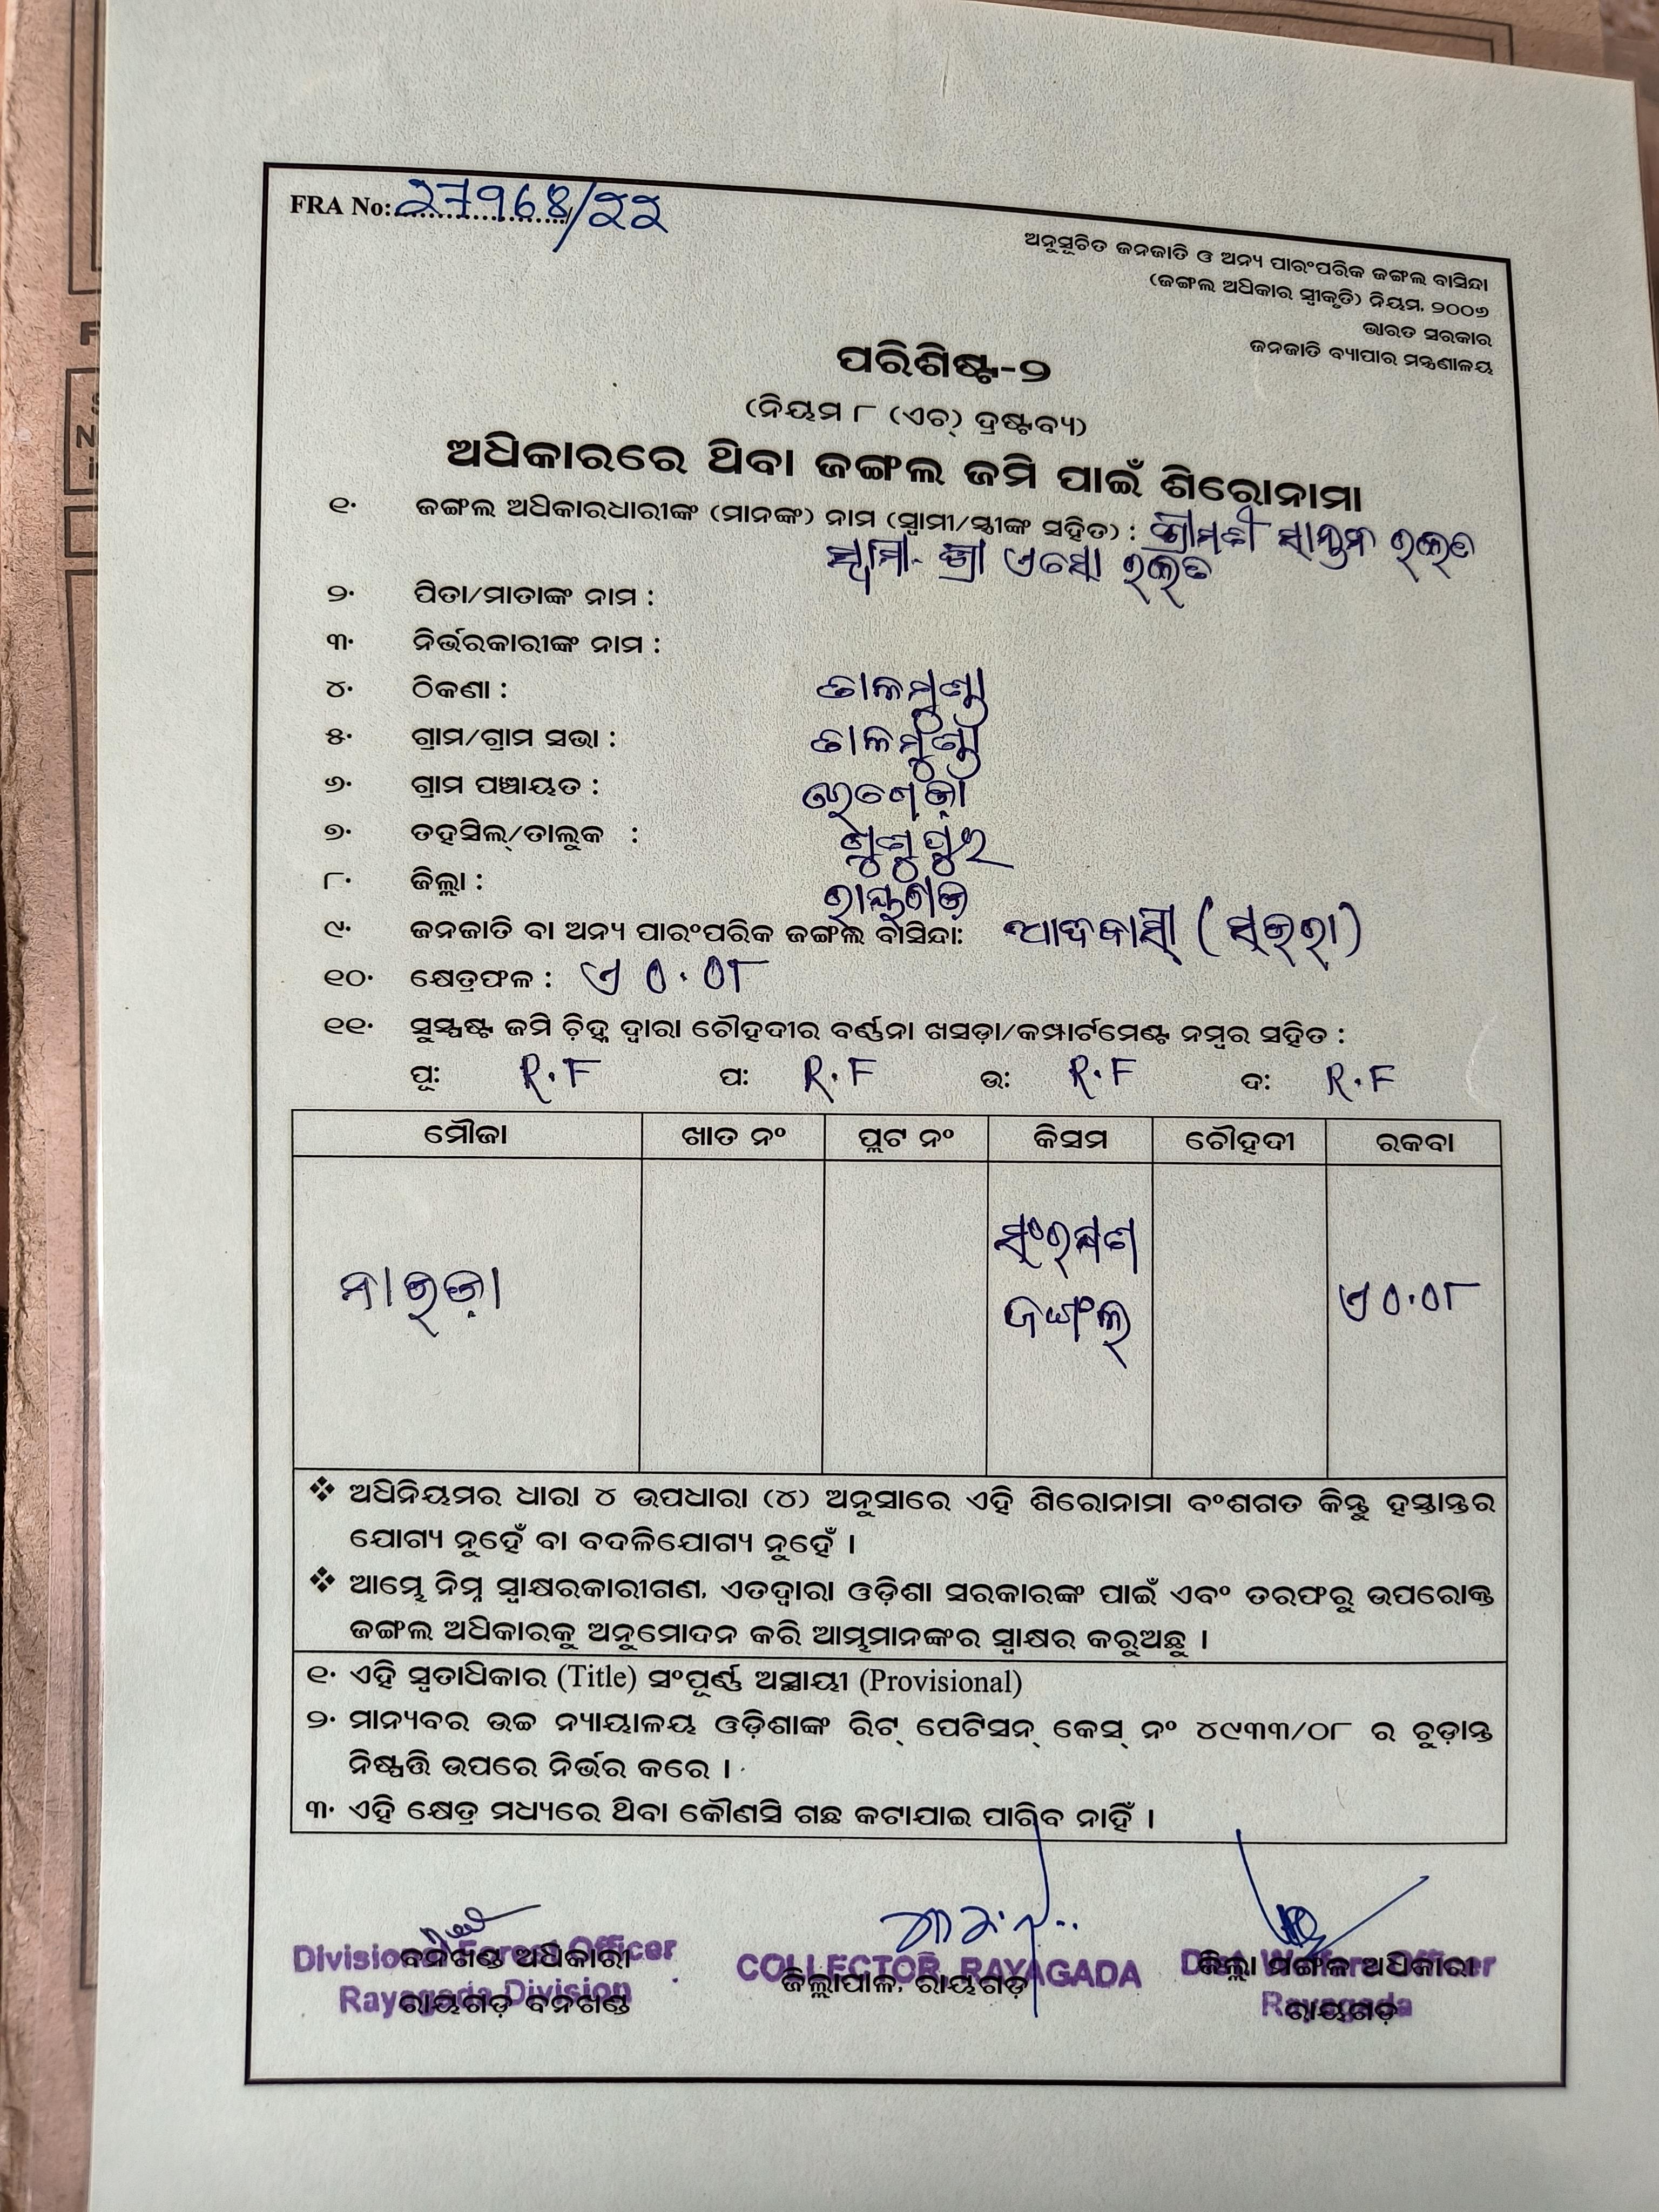 FRA No: 27968/22
ଅନୁସୂଚିତ ଜନଜାତି ଓ ଅନ୍ୟ ପାରଂପରିକ ଜଙ୍ଗଲ ବାସିନ୍ଦା
(ଜଙ୍ଗଲ ଅଧିକାର ସ୍ୱୀକୃତି) ନିୟମ, ୨୦୦୬
ଭାରତ ସରକାର
ଜନଜାତି ବ୍ୟାପାର ମନ୍ତ୍ରଣାଳୟ
ପରିଶିଷ୍ଟ-୨
(ନିୟମ ୮ (ଏଚ୍) ଦ୍ରଷ୍ଟବ୍ୟ)
ଅଧିକାରରେ ଥିବା ଜଙ୍ଗଲ ଜମି ପାଇଁ ଶିରୋନାମା
୧. ଜଙ୍ଗଲ ଅଧିକାରଧାରୀଙ୍କ (ମାନଙ୍କ) ନାମ (ସ୍ୱାମୀ/ସ୍ତ୍ରୀଙ୍କ ସହିତ) : ଶ୍ରୀମତୀ
ସ୍ୱାମୀ- ଶ୍ରୀ
୨. ପିତା/ମାତାଙ୍କ ନାମ :
୩. ନିର୍ଭରକାରୀଙ୍କ ନାମ :
୪. ଠିକଣା : ତାଳମୁଣ୍ଡା
୫. ଗ୍ରାମ/ଗ୍ରାମ ସଭା : ତାଳମୁଣ୍ଡା
୬. ଗ୍ରାମ ପଞ୍ଚାୟତ :
୭. ତହସିଲ୍/ତାଲୁକ : ଗୁଣୁପୁର
୮. ଜିଲ୍ଲା : ରାୟଗଡ
୯. ଜନଜାତି ବା ଅନ୍ୟ ପାରଂପରିକ ଜଙ୍ଗଲ ବାସିନ୍ଦା: ଆଦିବାସୀ (ସଉରା)
୧୦. କ୍ଷେତ୍ରଫଳ : ଏ ୦.୦୮
୧୧. ସୁସ୍ପଷ୍ଟ ଜମି ଚିହ୍ନ ଦ୍ୱାରା ଚୌହଦୀର ବର୍ଣ୍ଣନା ଖସଡ଼ା/କମ୍ପାର୍ଟମେଣ୍ଟ ନମ୍ବର ସହିତ :
ପୂ: R.F ପ: R.F ଉ: R.F ଦ: R.F
ମୌଜା ଖାତ ନଂ ପ୍ଲଟ ନଂ କିସମ ଚୌହଦୀ ରକବା
ସଂରକ୍ଷଣ
ନାଇଡ଼ା ଜଙ୍ଗଲ ଏ ୦.୦୮
❖ ଅଧିନିୟମର ଧାରା ୪ ଉପଧାରା (୪) ଅନୁସାରେ ଏହି ଶିରୋନାମା ବଂଶଗତ କିନ୍ତୁ ହସ୍ତାନ୍ତର
ଯୋଗ୍ୟ ନୁହେଁ ବା ବଦଳିଯୋଗ୍ୟ ନୁହେଁ ।
❖ ଆମ୍ଭେ ନିମ୍ନ ସ୍ୱାକ୍ଷରକାରୀଗଣ, ଏତଦ୍ୱାରା ଓଡ଼ିଶା ସରକାରଙ୍କ ପାଇଁ ଏବଂ ତରଫରୁ ଉପରୋକ୍ତ
ଜଙ୍ଗଲ ଅଧିକାରକୁ ଅନୁମୋଦନ କରି ଆମ୍ଭମାନଙ୍କର ସ୍ୱାକ୍ଷର କରୁଅଛୁ ।
୧. ଏହି ସ୍ୱତାଧିକାର (Title) ସଂପୂର୍ଣ୍ଣ ଅସ୍ଥାୟୀ (Provisional)
୨. ମାନ୍ୟବର ଉଚ୍ଚ ନ୍ୟାୟାଳୟ ଓଡ଼ିଶାଙ୍କ ରିଟ୍ ପେଟିସନ୍ କେସ୍ ନଂ ୪୯୩୩/୦୮ ର ଚୁଡ଼ାନ୍ତ
ନିଷ୍ପତ୍ତି ଉପରେ ନିର୍ଭର କରେ ।
୩. ଏହି କ୍ଷେତ୍ର ମଧ୍ୟରେ ଥିବା କୌଣସି ଗଛ କଟାଯାଇ ପାରିବ ନାହିଁ ।
Divisional Forest Officer COLLECTOR, RAYAGADA Dist. Welfare Officer
ବନଖଣ୍ଡ ଅଧିକାରୀ ଜିଲ୍ଲାପାଳ, ରାୟଗଡ଼ ଜିଲ୍ଲା ମଙ୍ଗଳ ଅଧିକାରୀ
Rayagada Division Rayagada
ରାୟଗଡ଼ ବନଖଣ୍ଡ ରାୟଗଡ଼